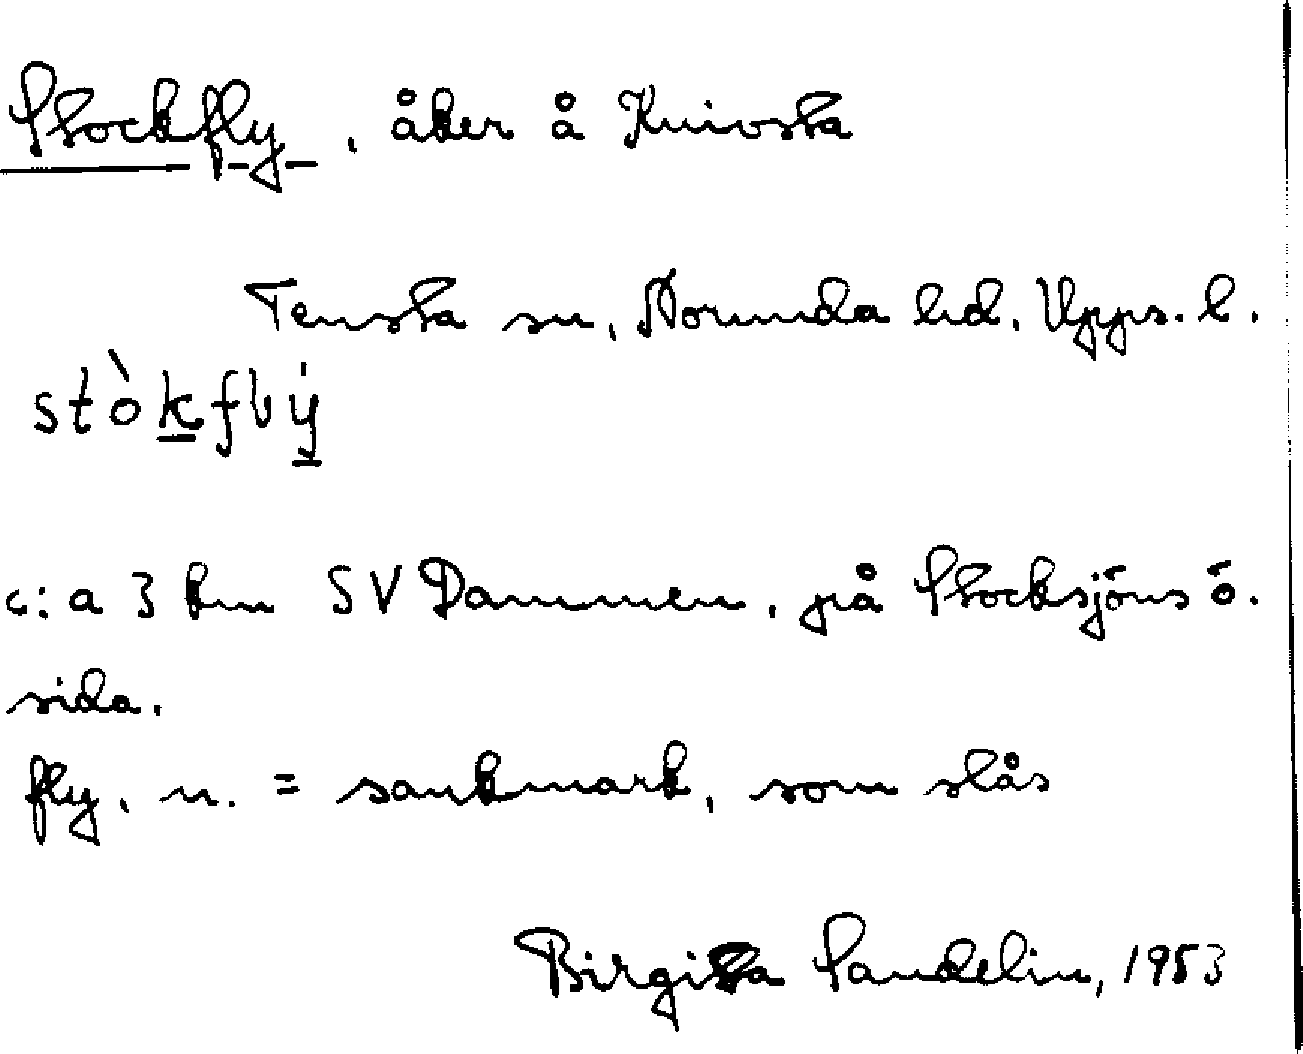 Stockfly, åker å Knivsta
Tensta sn, Norunda hd. Upps. l.
stòkflẏ
c:a 3 km SV Dammen, på Stocksjöns ö.
sida.
fly, n. = sankmark, som slås
Birgitta Sandelin, 1953